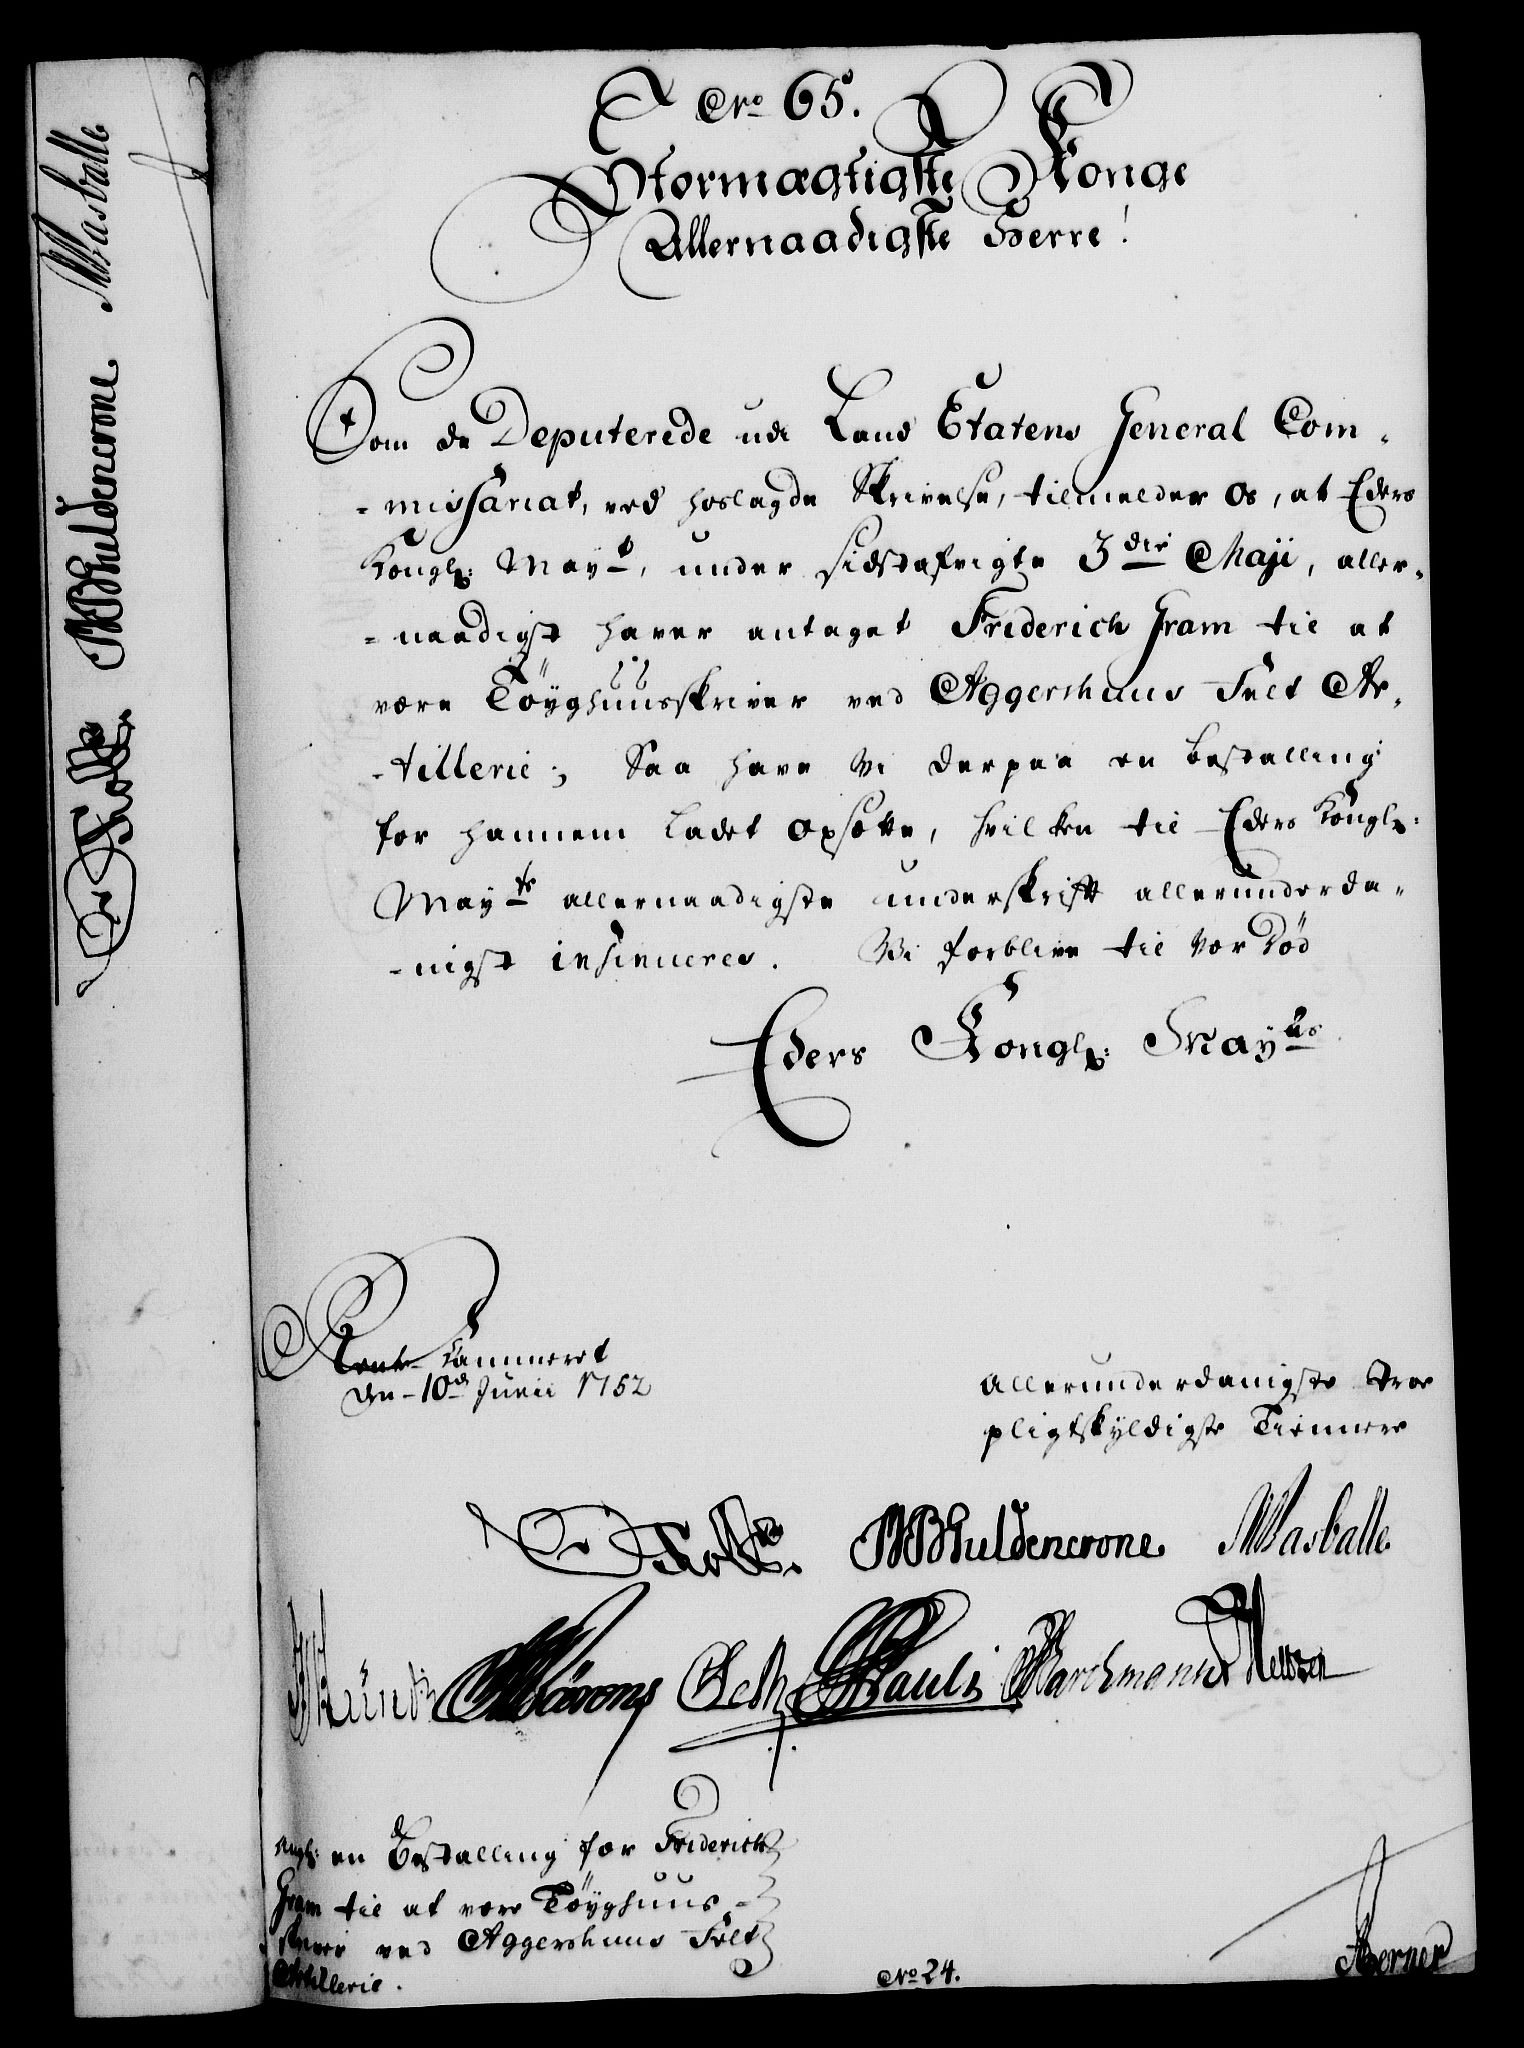 No 65.
Stormægtigste Konge
Allernaadigste Herre!
Som de Deputerede udi Land Etatens General Com-
-missariat, ved hoslagde Skrivelse, tilmelder os, at Eders
Kongl: Mayt, under sidstafvigte 3die Maji, aller-
-naadigst haver antaget Friderich Gram til at
være Töyghuusskriver ved Aggershuus Felt Ar-
-tillerie; Saa have Vi derpaa en bestalling
for hannem ladet opsætte, hvilken til Eders Kongl:
Mayts allernaadigste underskrift allerunderda-
-nigst insinueres. Vi forblive til vor Död
Eders Kongl: Mayts
Rente-Kammeret
den 10d Junii 1752
allerunderdanigste troe
pligtskyldigste Tiennere
Holst. Guldencrone. Masballe
Pauli Marchmann
en Bestalling for Friderich
Gram til at være Töyghuus-
skriver ved Aggershuus Felt
Artillerie.
No 24.
Berner
Masballe
Guldencrone
Holst